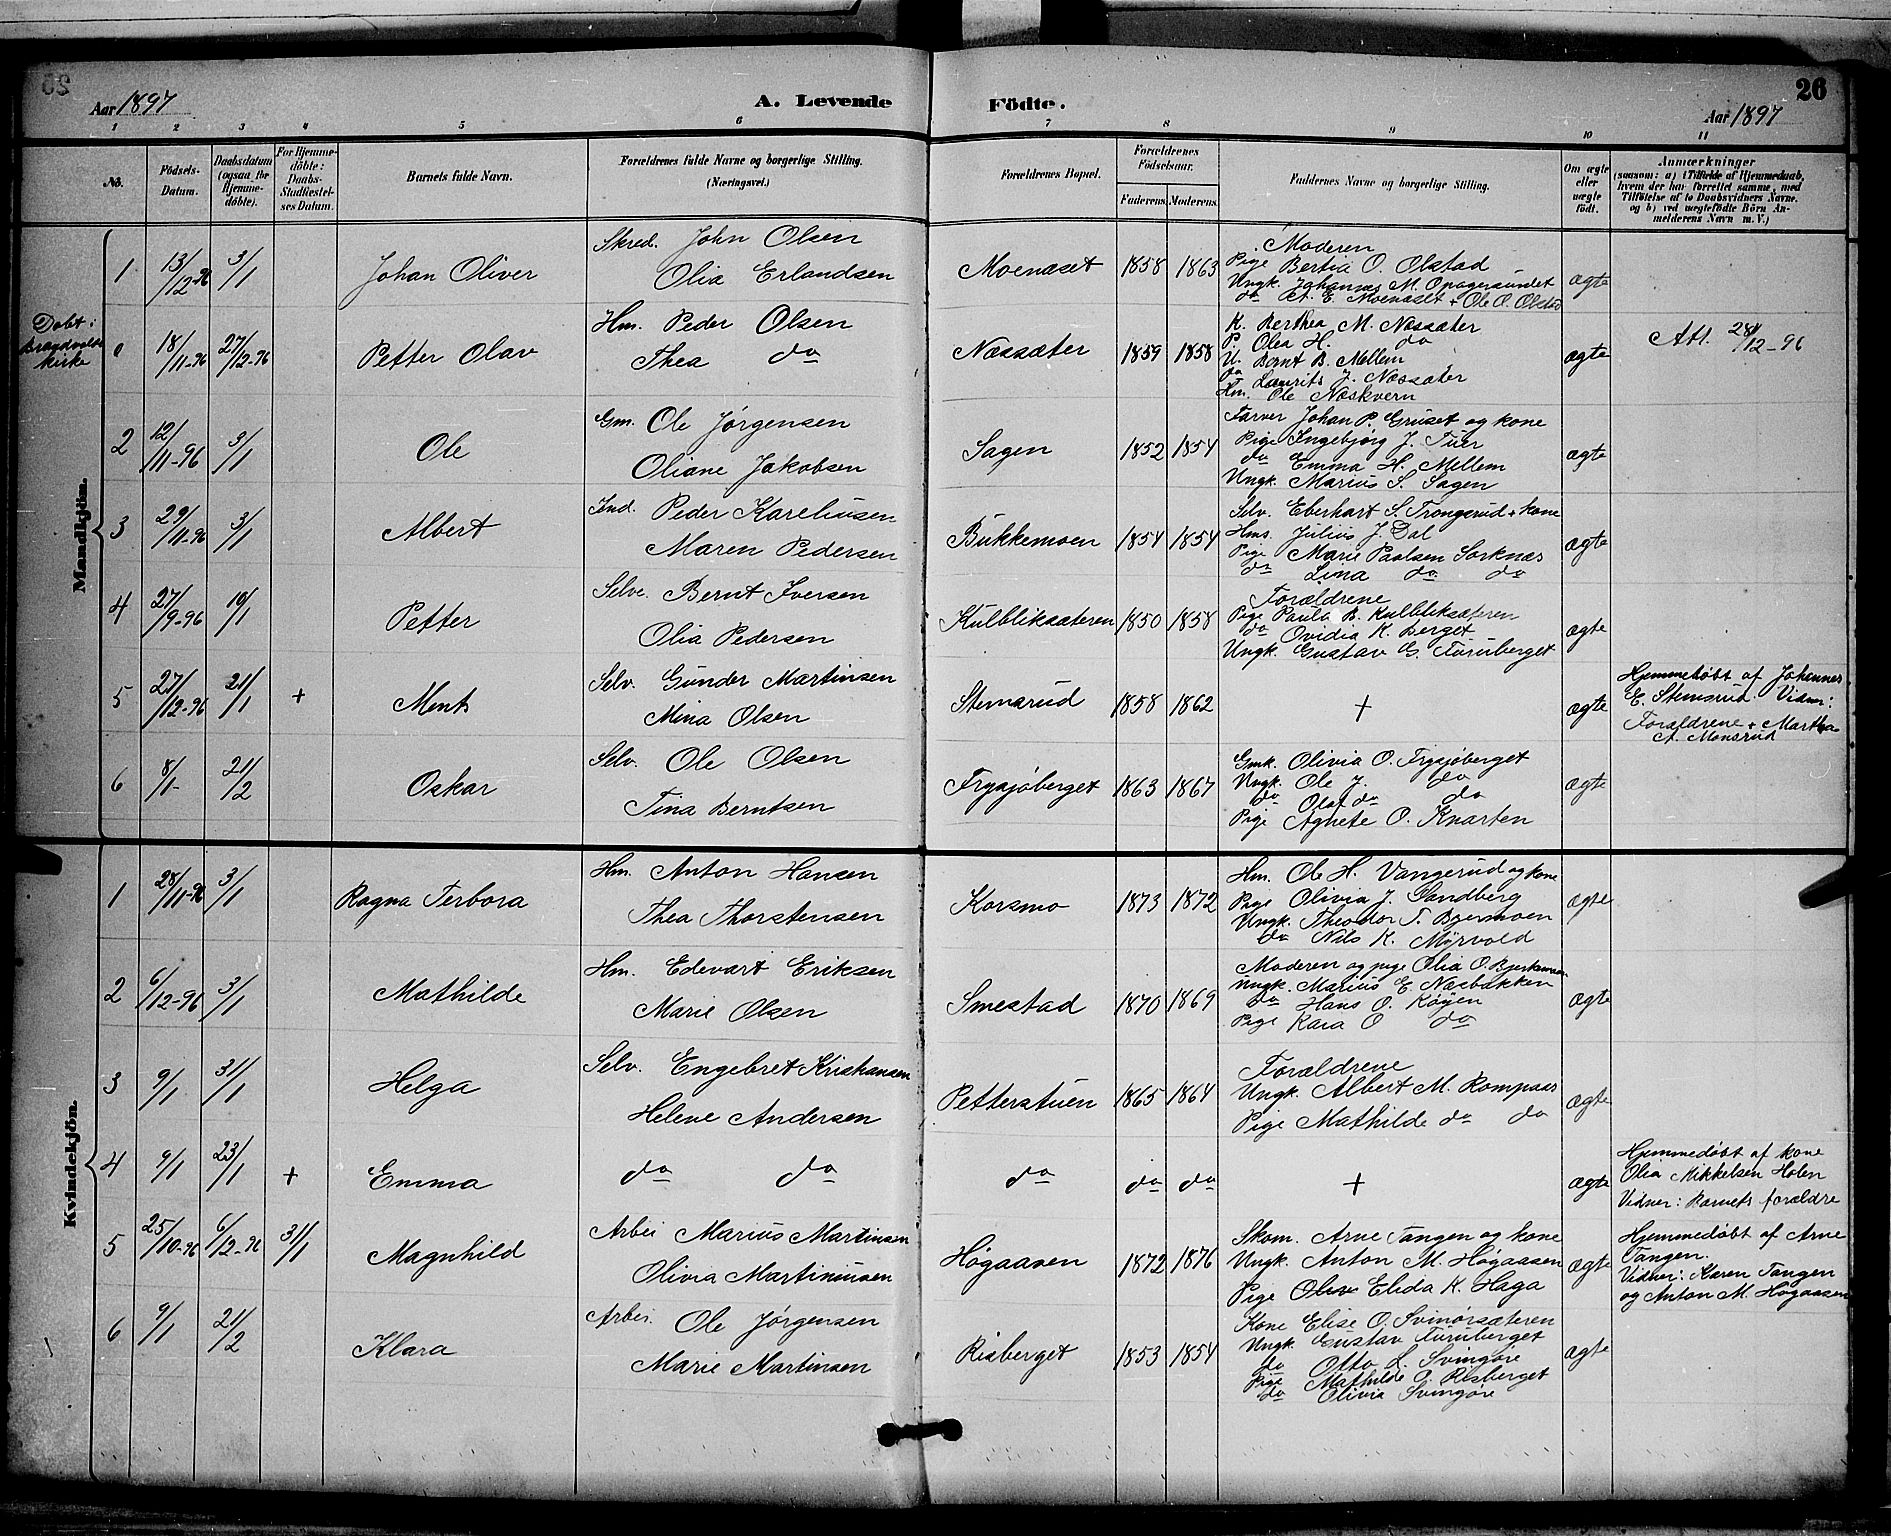 Aar 1897
A. Levende
Födte.
26
Aar 1897
1 2 3 4 5 6 7 8 9 10 11
No.
Födsels-Datum.
Daabsdatum (ogsaa for Hjemme-döbte).
For Hjemme-döbte: Daabs-Stadfæstel-ses Datum.
Barnets fulde Navn.
Forældrenes fulde Navne og borgerlige Stilling. (Næringsvei.)
Forældrenes Bopæl.
Forældrenes Födselsaar.
Faderens. Moderens.
Faddernes Navne og borgerlige Stilling.
Om ægte eller uægte født.
Anmærkninger
(saasom: a) i Tilfælde af Hjemmedaab,
hvem der har forrettet samme, med
Tilföielse af to Daabsvidners Navne.
og b) ved uægtefödte Börn An-
melderens Navn m. V.)
Mandkjön.
1 13/12-96 3/1 Johan Oliver
Skred. John Olsen
Olia Erlandsen
Moenæset 1858 1863
Moderen
Pige Bertia O. Olstad
Ungk. Johannes M. Opagersundet
do A. E. Moenæset + Ole O. Olstad
ægte
Døbt i
kirke
18/11-96 27/12-96 Petter Olav
Hm. Peder Olsen
Thea do
Næssæter 1859 1858
K. Berthea M. Næssæter
P. Olea H. do
U. Bernt B. Mellem
do Laurits J. Næssæter
Hm. Ole Næskvern
ægte
Att. 28/12-96
2 12/11-96 3/1 Ole
Gm. Ole Jørgensen
Oliane Jakobsen
Sagen 1852 1854
Farver Johan P. Gruset og kone
Pige Ingebjørg J. Tuer
do Emma H. Mellem
Ungk. Marius S. Sagen
ægte
3 29/11-96 3/1 Albert
Ind. Peder Kareliusen
Maren Pedersen
Bukkemoen 1854 1854
Selv. Eberhart S. Trongerud + kone
Hms. Julius J. Dal
Pige Marie Paulsen Sorknæs
do Lina do do
ægte
4 27/9-96 10/1 Petter
Selve. Bernt Iversen
Olia Pedersen
Kulbliksæteren 1850 1858
Forældrene
Pige Paula B. Kulbliksæteren
do Ovidia K. Berget
Ungk. Gustav G. Furuberget
ægte
5 27/12-96 21/1 + Ments
Selv. Gunder Martinsen
Mina Olsen
Stemsrud 1858 1862
+
ægte
Hjemmedøbt af Johannes
E. Stemsrud. Vidner:
Forældrene + Martha
A. Monsrud
6 8/1- 21/2 Oskar
Selv. Ole Olsen
Tina Berntsen
Frysjøberget 1863 1867
Gmk. Olivia O. Frysjøberget
Ungk. Ole J. do
do Olaf do do
Pige Agnete O. Knarten
ægte
Kvindekjön.
1 28/11-96 3/1 Ragna Terbora
Hm. Anton Hansen
Thea Thorstensen
Korsmo 1873 1872
Hm. Ole H. Vangerud og kone
Pige Olivia J. Sandberg
Ungk. Theodor T. Bjermoen
do Nils K. Myrvold
ægte
2 6/12-96 3/1 Mathilde
Hm. Edevart Eriksen
Marie Olsen
Smestad 1870 1869
Moderen og pige Olia O.
Ungk. Marius E. Næsbakken
do Hans O. Køyen
Pige Kaia O do
ægte
3 9/1 31/1 Helga
Selv. Engebret Kristiansen
Helene Andersen
Petterstuen 1865 1864
Forældrene
Ungk. Albert M. Rompsæs
Pige Mathilde do do
ægte
4 9/1 23/1 + Emma
do do
do do do
+
ægte
Hjemmedøbt af kone
Olia Mikkelsen Holen
Vidner: Barnets forældre
5 25/10-96 6/12-96 31/1 Magnhild
Arbei Marius Martinsen
Olivia Martiniusen
Høgaasen 1872 1876
Skom. Arne Tangen og kone
Ungk. Anton M. Høgaasen
Pige Oline Elida K. Haga
ægte
Hjemmedøbt af Arne
Tangen.
Vidner: Karen Tangen
og Anton M. Høgaasen
6 9/1 21/2 Klara
Arbei. Ole Jørgensen
Marie Martinsen
Risberget 1853 1854
Kone Elise O. Svinørsæteren
Ungk. Gustav Furuberget
do Otto L. Svingøre
Pige Mathilde O. Risberget
do Olivia Svingøre
ægte